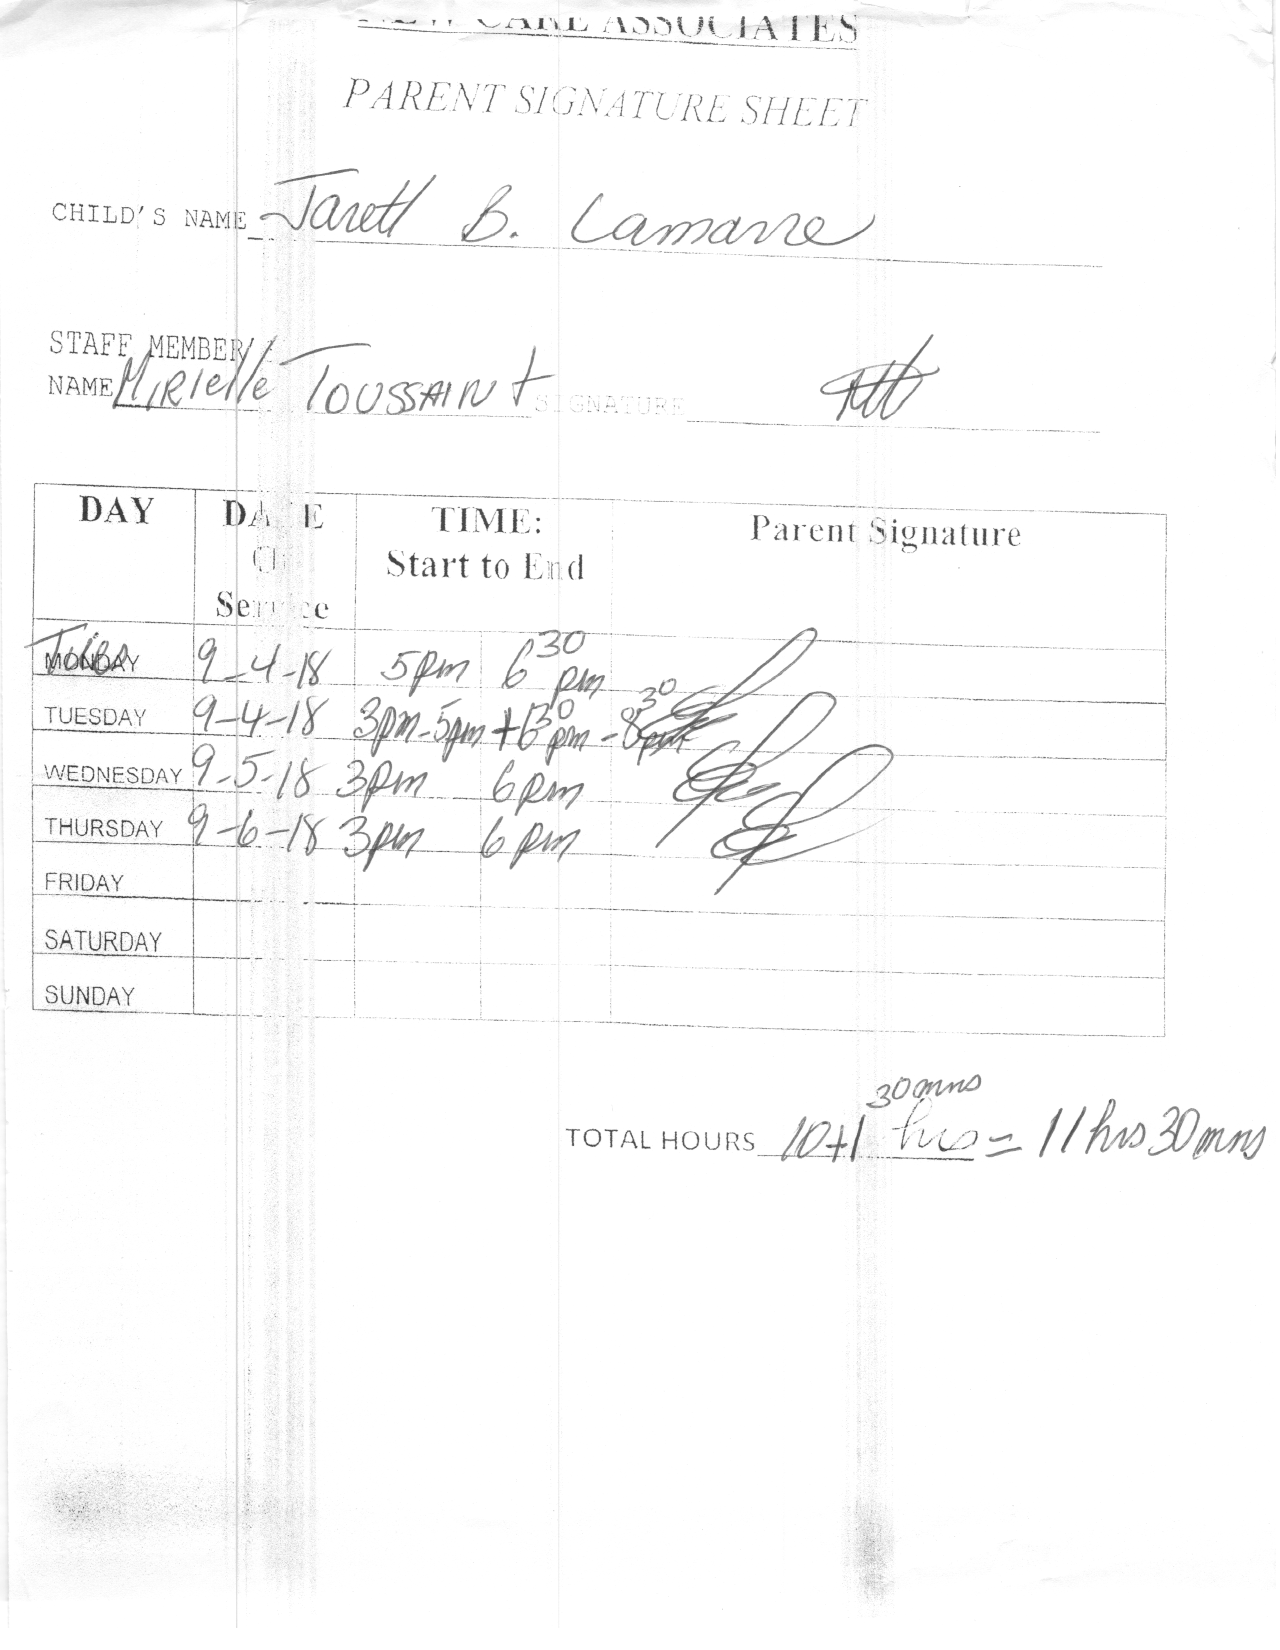 NEW CARE ASSOCIATES
PARENT SIGNATURE SHEET
CHILD'S NAME Jarett B. Lamarre
STAFF MEMBER
NAME Mirielle Toussaint SIGNATURE
DAY DATE Of Service TIME: Start to End Parent Signature
MONDAY Tues 9-4-18 5pm 6 30 pm
TUESDAY 9-4-18 3pm-5pm + 6 30 pm - 8 30 pm
WEDNESDAY 9-5-18 3pm 6pm
THURSDAY 9-6-18 3pm 6pm
FRIDAY
SATURDAY
SUNDAY
TOTAL HOURS 10+1 30mns hrs = 11hrs30mns